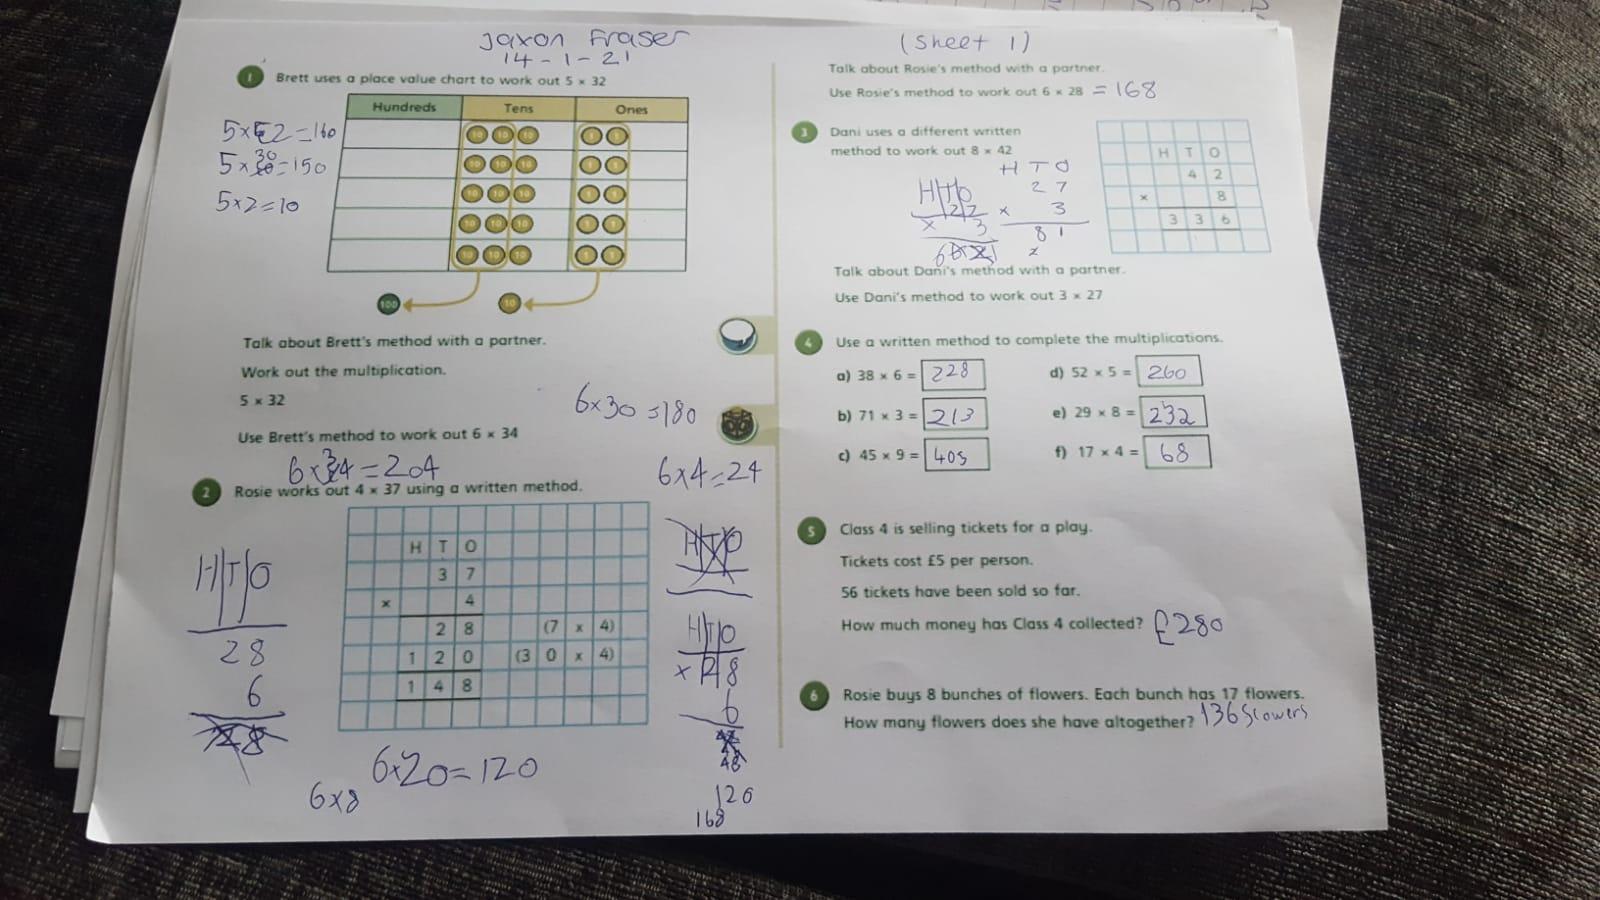 Jaxon Fraser
14-1-21
(Sheet 1)
1 Brett uses a place value chart to work out 5 × 32
Hundreds Tens Ones
10 10 10 1 1
10 10 10 1 1
10 10 10 1 1
10 10 10 1 1
10 10 10 1 1
100 10
5×2=160
5×30=150
5×2=10
Talk about Brett's method with a partner.
Work out the multiplication.
5 × 32
6×30=180
Use Brett's method to work out 6 × 34
6×34=204
6×4=24
2 Rosie works out 4 × 37 using a written method.
H T O
3 7
× 4
2 8 (7 × 4)
1 2 0 (3 0 × 4)
1 4 8
H|T|O
28
6
HTO
H|T|O
× 28
6
48
120
168
6×20=120
6×8
Talk about Rosie's method with a partner.
Use Rosie's method to work out 6 × 28 =168
3 Dani uses a different written
method to work out 8 × 42
H T O
4 2
× 8
3 3 6
H T O
2 7
× 3
8 1
2
H|T|O
× 3
Talk about Dani's method with a partner.
Use Dani's method to work out 3 × 27
4 Use a written method to complete the multiplications.
a) 38 × 6 = 228
d) 52 × 5 = 260
b) 71 × 3 = 213
e) 29 × 8 = 232
c) 45 × 9 = 405
f) 17 × 4 = 68
5 Class 4 is selling tickets for a play.
Tickets cost £5 per person.
56 tickets have been sold so far.
How much money has Class 4 collected? £280
6 Rosie buys 8 bunches of flowers. Each bunch has 17 flowers.
How many flowers does she have altogether? 136 flowers